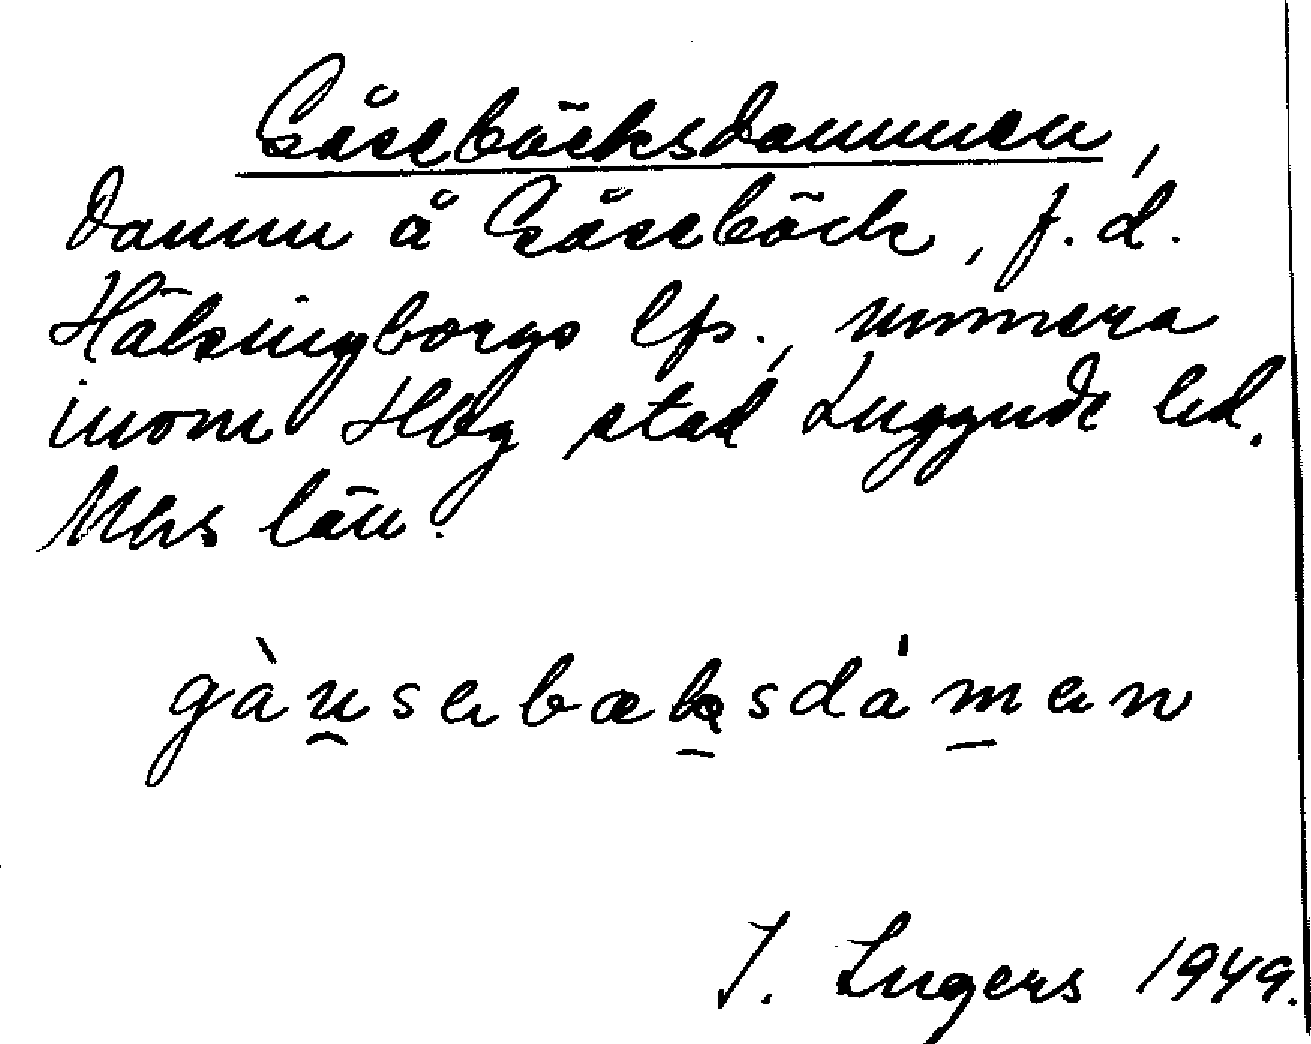 Gåsebäcksdammen,
damm å Gåsebäck, f. d.
Hälsingborgs lfs., numera
inom Hbg stad Luggude hd.
Mhs län.
gàu̯sebæk̠sdám̠en
I. Ingers 1949.